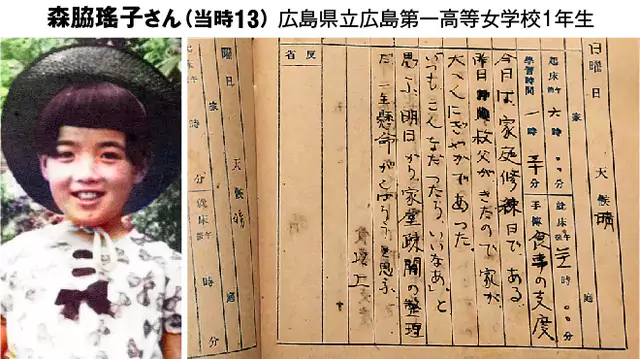 森脇瑤子さん（当時13） 広島県立広島第一高等女学校1年生
日 曜日 天候 晴
起床 午前 六時 〇〇分 就床 午後 九時 〇〇分
学習時間 一時 三十分 手伝 食事の支度
家庭
今日は、家庭修練日である。
昨日 叔父がきたので家が
大へんにぎやかであった。
「いつもこんなだったら、いいなあ」と
思ふ。明日から、家屋疎開の整理
だ。一生懸命がんばらうと思ふ。
省 反
曜日 天候
家庭
時 分
就床 午後
時 分